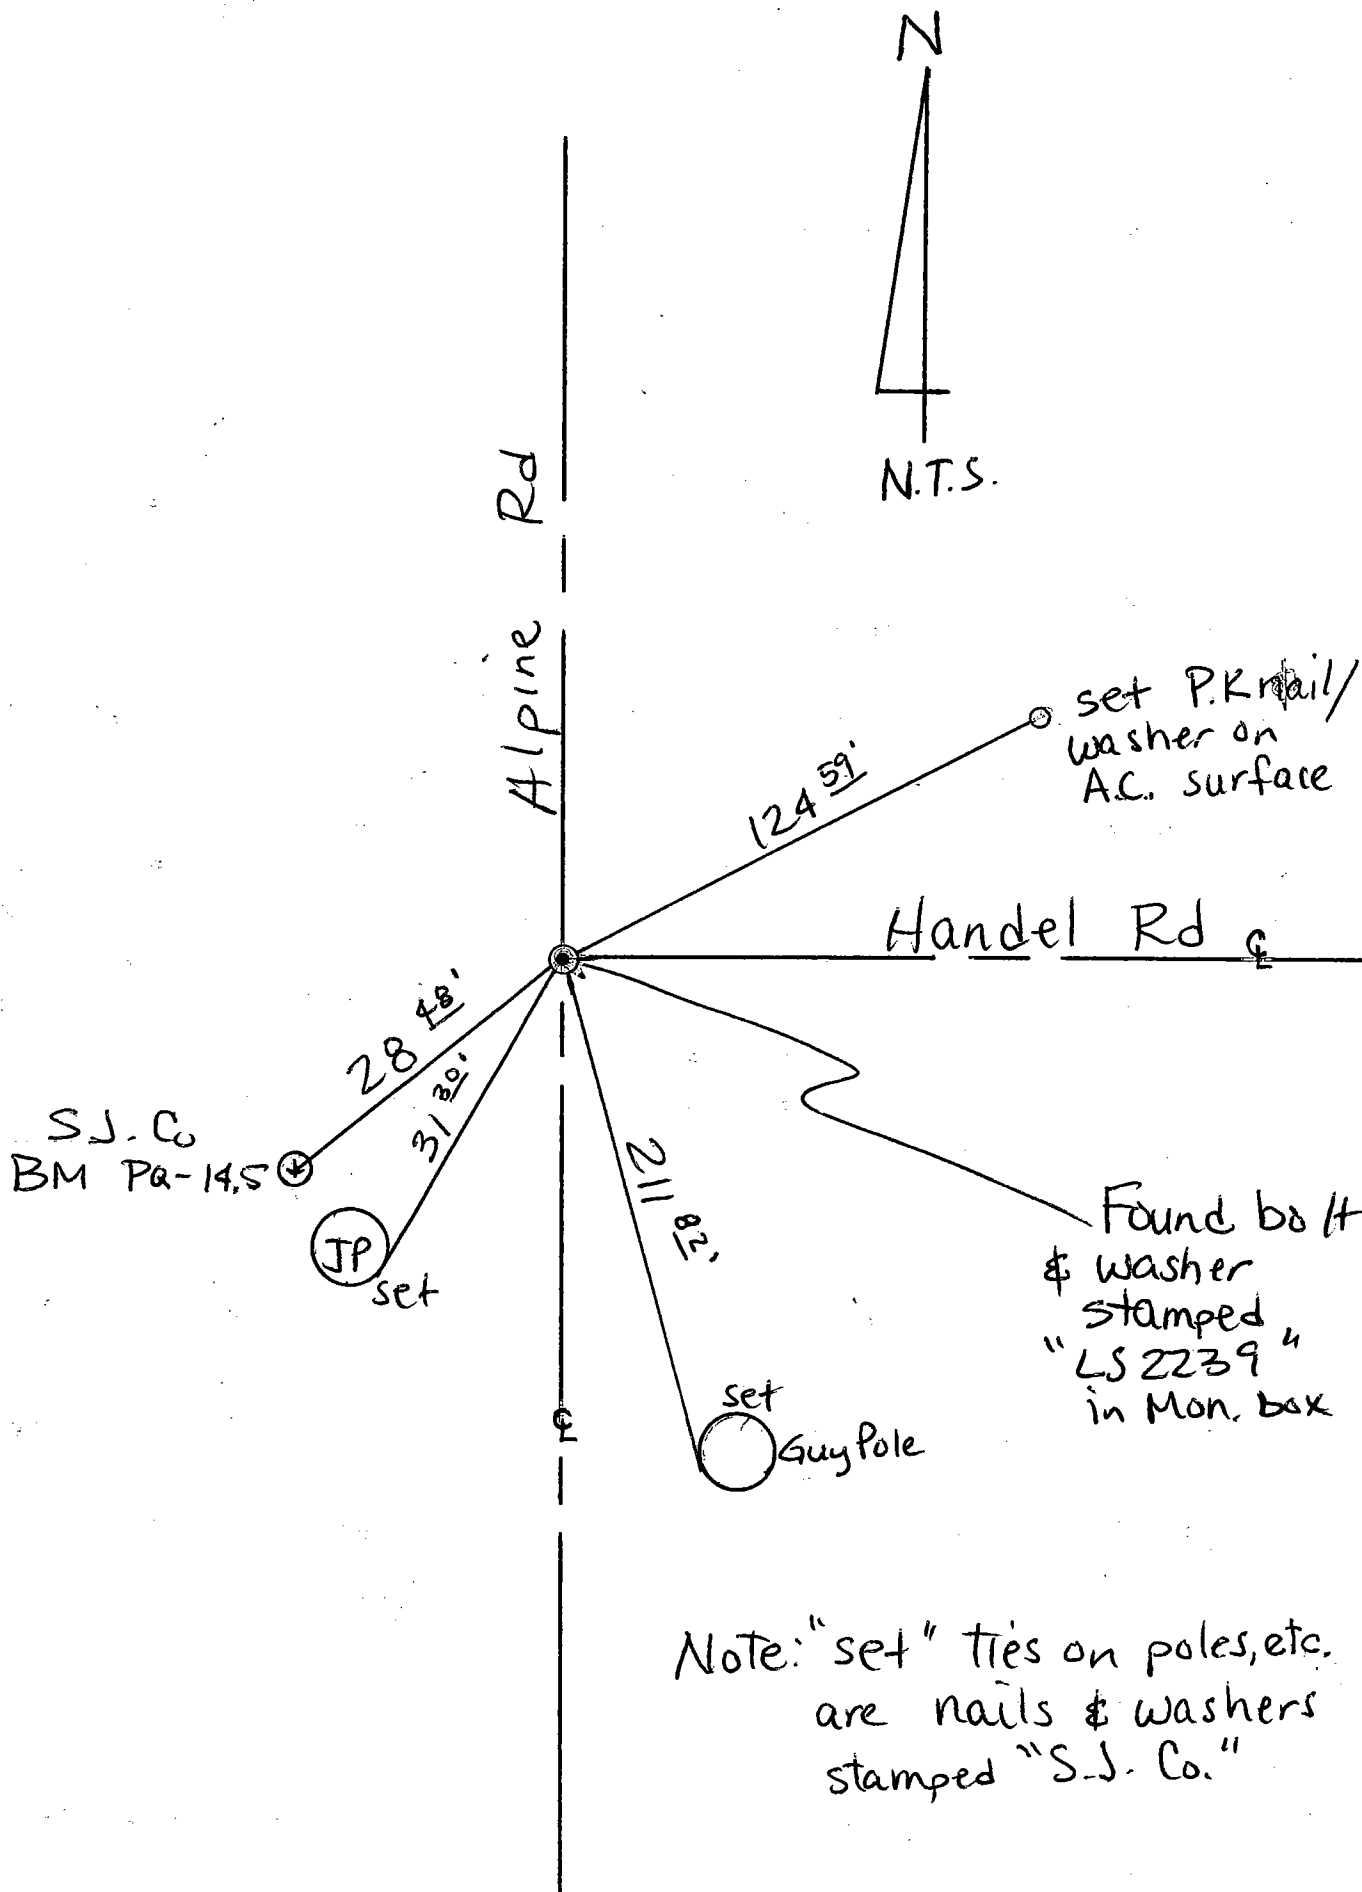 N
N.T.S.
Alpine Rd
set P.K nail/
washer on
A.C. surface
124 59'
Handel Rd ℄
28 48'
31 30'
S.J. Co
BM PQ-14.5
JP
set
211 82'
Found bolt
& washer
stamped
"LS 2239"
in Mon. box
℄
set
Guy Pole
Note: "set" ties on poles, etc.
are nails & washers
stamped "S.J. Co."